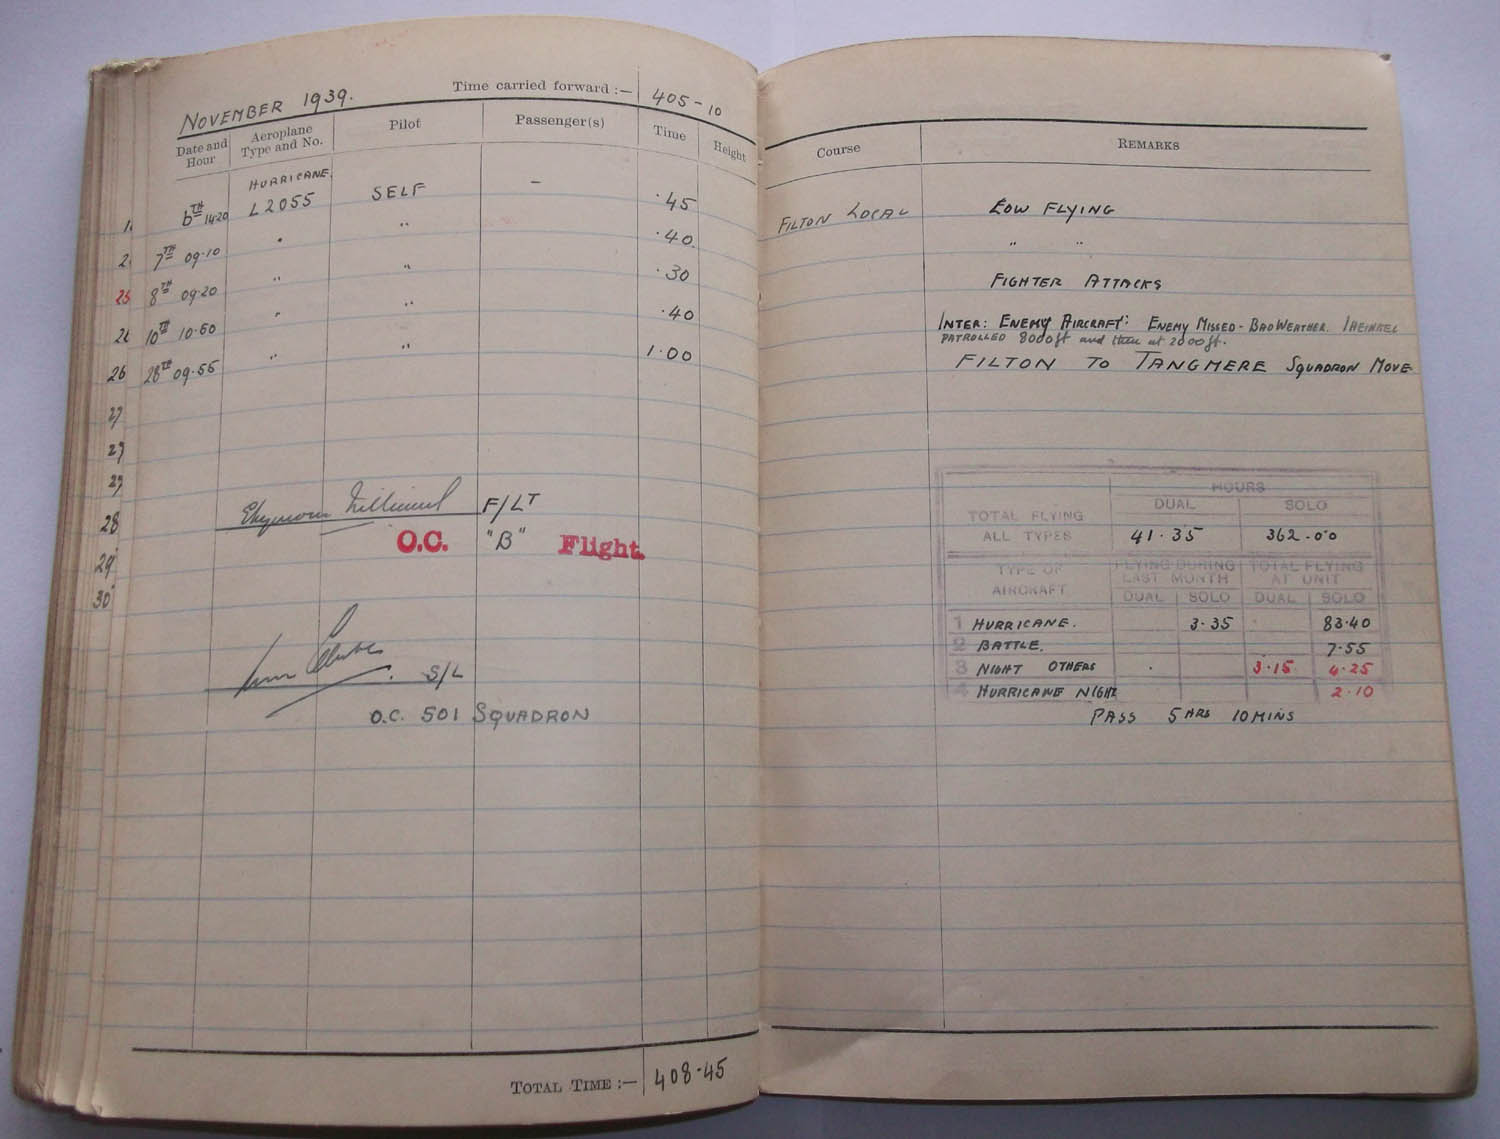 NOVEMBER 1939.
Time carried forward :— 405-10
Date and Hour
Aeroplane Type and No.
Pilot
Passenger(s)
Time
Height
HURRICANE.
6TH 14·20 L2055 SELF – ·45
7TH 09·10 " " ·40
8TH 09·20 " " ·30
10TH 10·50 " " ·40
28TH 09·55 " " 1·00
26
27
28
29
30
F/LT
O.C. "B" Flight.
S/L
O.C. 501 SQUADRON
TOTAL TIME :— 408·45
Course
REMARKS
FILTON LOCAL LOW FLYING
" "
FIGHTER ATTACKS
INTER: ENEMY AIRCRAFT: ENEMY MISSED - BAD WEATHER. 1 HEINKEL
PATROLLED 8000ft and then at 2000ft.
FILTON TO TANGMERE SQUADRON MOVE
HOURS
DUAL SOLO
TOTAL FLYING
ALL TYPES 41·35 362·00
TYPE OF AIRCRAFT
FLYING DURING LAST MONTH
TOTAL FLYING AT UNIT
DUAL SOLO DUAL SOLO
1 HURRICANE. 3·35 83·40
2 BATTLE. 7·55
3 NIGHT OTHERS 3·15 4·25
4 HURRICANE NIGHT 2·10
PASS 5 HRS 10 MINS